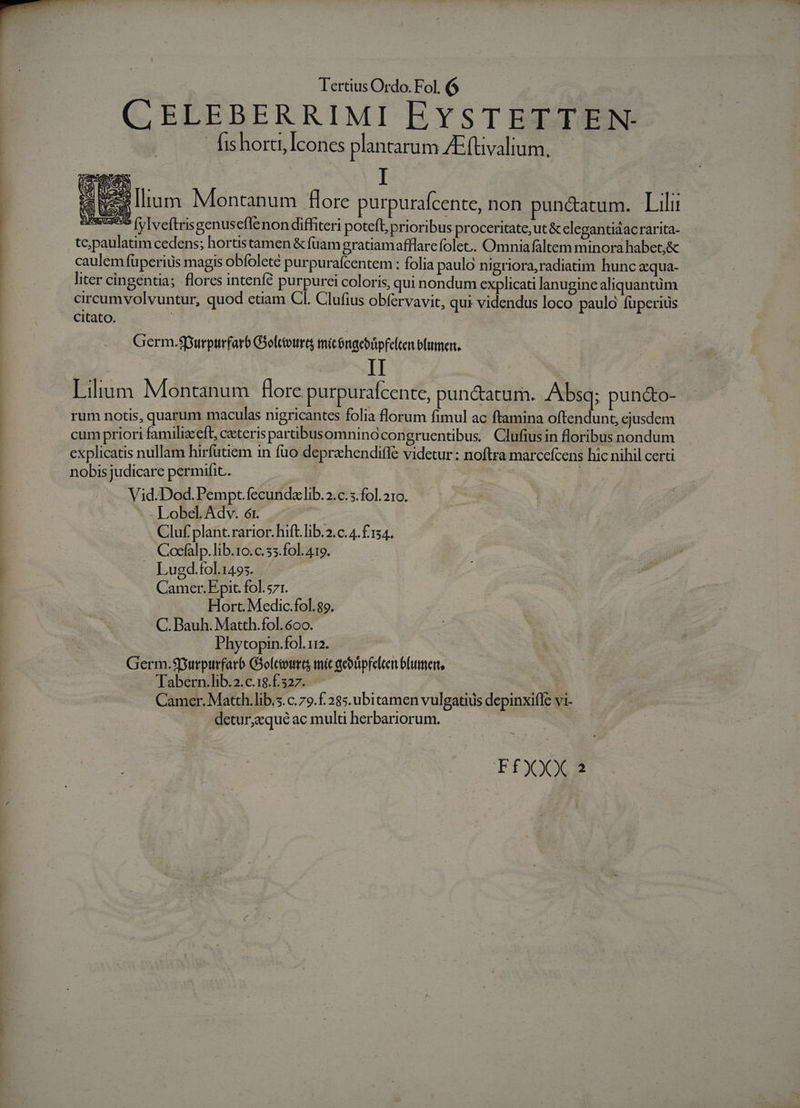 Tertius Ordo. Fol. 6
CELEBERRIMI EYSTETTEN-
ſis horti, Icones plantarum Æſtivalium.
I
Lilium Montanum flore purpuraſcente, non punctatum. Lilii
ſylveſtris genus eſſe non diffiteri poteſt, prioribus proceritate, ut & elegantiâ ac rarita-
te, paulatim cedens; hortis tamen & ſuam gratiam afflare ſolet.. Omnia ſaltem minora habet, &
caulem ſuperiùs magis obſoletè purpuraſcentem: folia paulò nigriora, radiatim hunc æqua-
liter cingentia; flores intenſè purpurei coloris, qui nondum explicati lanugine aliquantùm
circumvolvuntur, quod etiam Cl. Cluſius obſervavit, qui videndus loco paulò ſuperiùs
citato.
Germ. Purpurfarb Goltwurtz mit ungedüpfelten blumen.
II
Lilium Montanum flore purpuraſcente, punctatum. Absq; puncto-
rum notis, quarum maculas nigricantes folia florum ſimul ac ſtamina oſtendunt, ejusdem
cum priori familiæ eſt, cæteris partibus omninò congruentibus. Cluſius in floribus nondum
explicatis nullam hirſutiem in ſuo depræhendiſſe videtur: noſtra marceſcens hic nihil certi
nobis judicare permiſit..
Vid. Dod. Pempt. ſecundæ lib. 2. c. 5. fol. 210.
Lobel. Adv. 61.
Cluſ. plant. rarior. hiſt. lib. 2. c. 4. f. 154.
Cœſalp. lib. 10. c. 35. fol. 419.
Lugd. fol. 1495.
Camer. Epit. fol. 571.
Hort. Medic. fol. 89.
C. Bauh. Matth. fol. 600.
Phytopin. fol. 112.
Germ. Purpurfarb Goltwurtz mit gedüpfelten blumen.
Tabern. lib. 2. c. 18. f. 327.
Camer. Matth. lib. 3. c. 79. f. 285. ubi tamen vulgatiùs depinxiſſe vi-
detur, æquè ac multi herbariorum.
Ff XXX 2